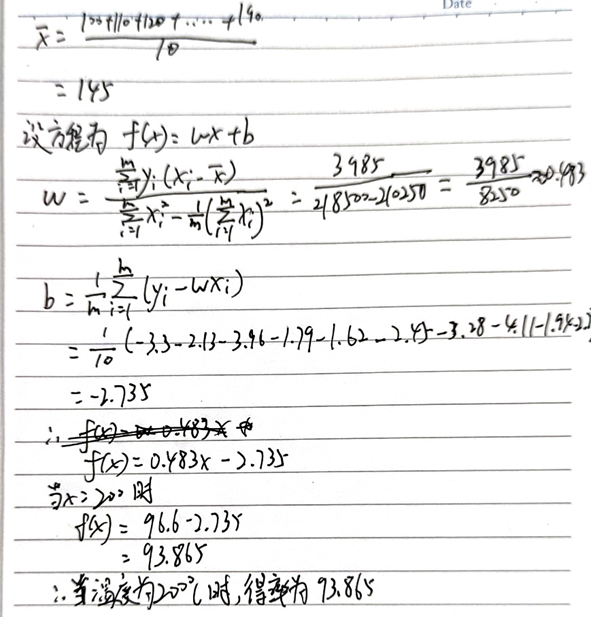 Date
x̄ = (100+110+120+.....+190)/10
= 145
设方程为 f(x) = wx+b
w = (∑_{i=1}^{m} y_i (x_i - x̄))/(∑_{i=1}^{m} x_i² - 1/m(∑_{i=1}^{m} x_i)²) = 3985/(218500-210250) = 3985/8250 ≈0.483
b = 1/m ∑_{i=1}^{m} (y_i - wx_i)
= 1/10 (-3.3-2.13-3.96-1.79-1.62-2.45-3.28-4.11-1.94-2.
= -2.735
∴ f(x) = 0.483x
f(x) = 0.483x - 2.735
当x=200时
f(x) = 96.6-2.735
= 93.865
∴当温度为200℃时,得率为93.865